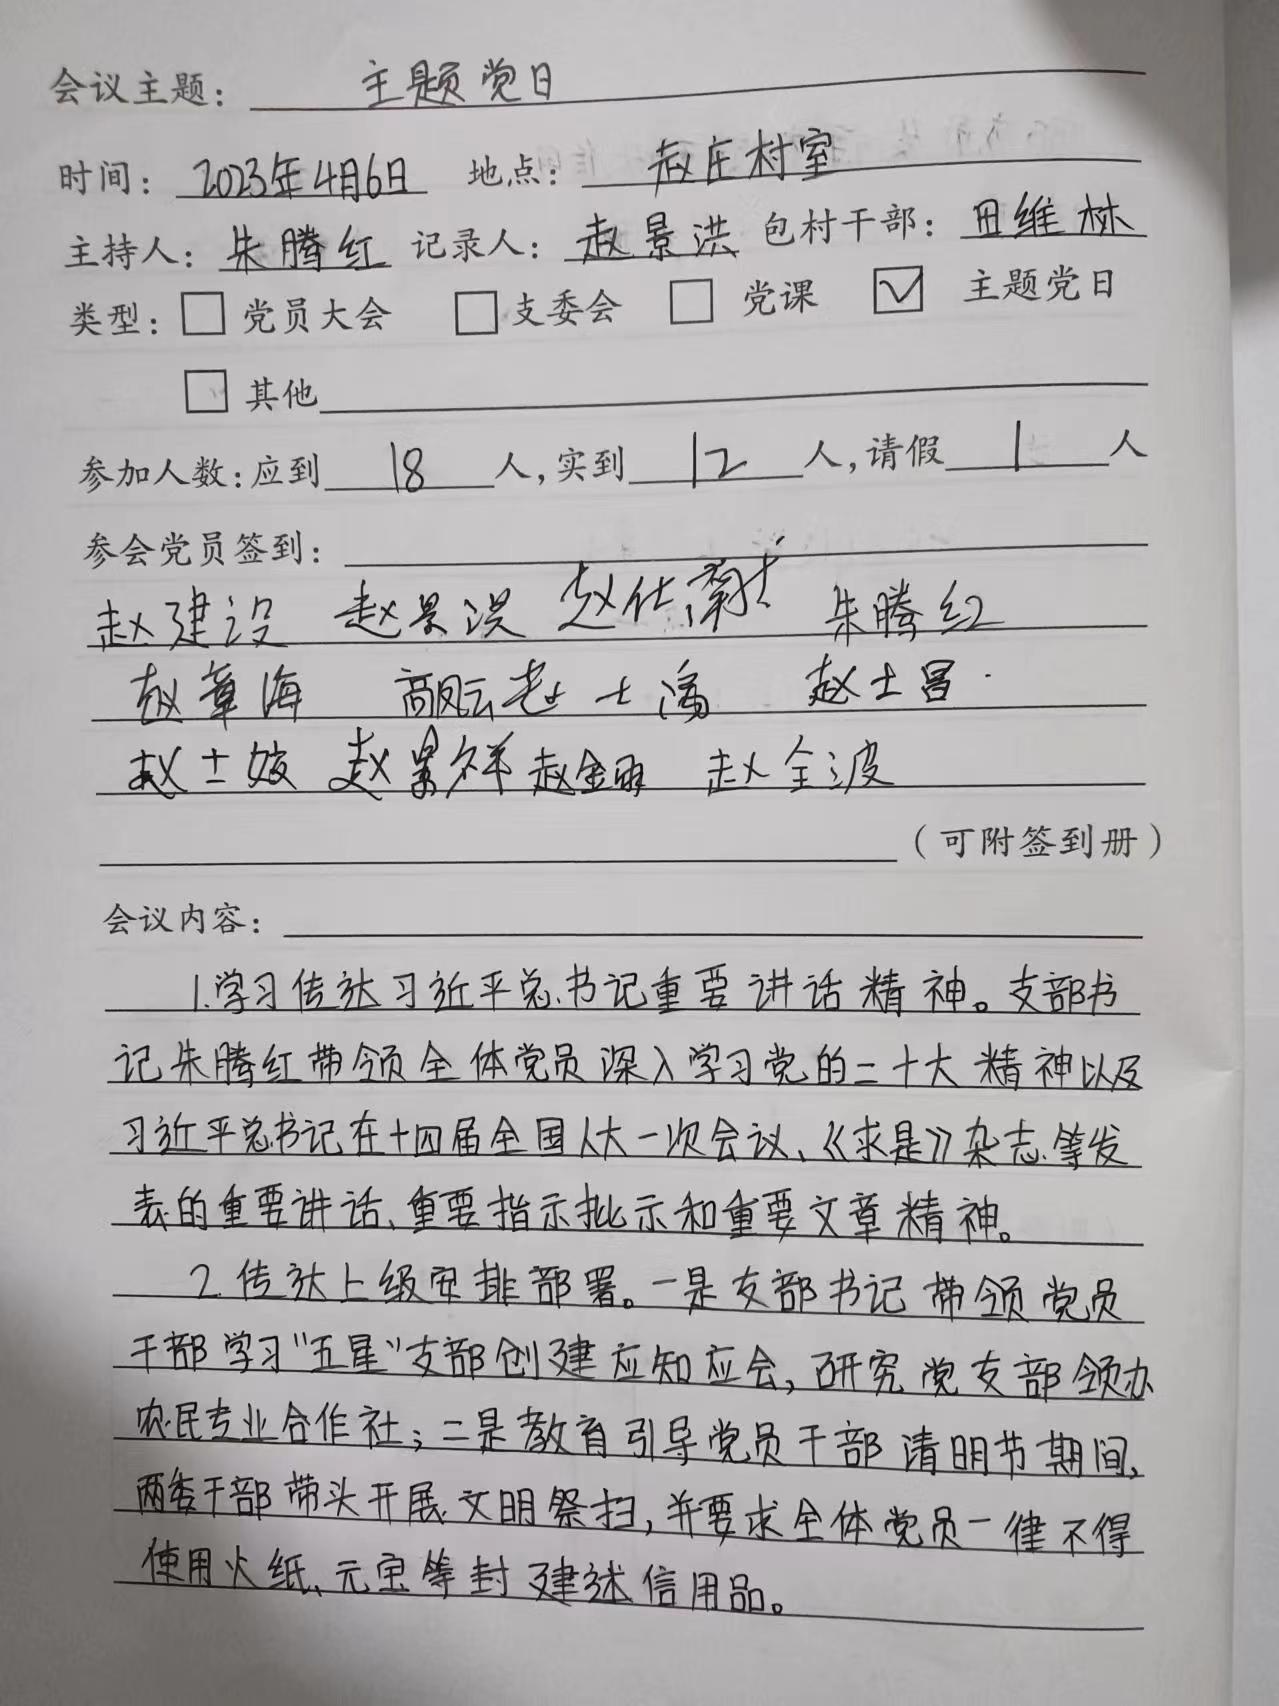 会议主题： 主题党日
时间： 2023年4月6日 地点： 赵庄村室
主持人： 朱腾红 记录人： 赵景洪 包村干部： 田维林
类型： 党员大会 支委会 党课 主题党日
其他
参加人数：应到 18 人，实到 12 人，请假 1 人
参会党员签到：
赵建设 赵景洪 赵仕 朱腾红
赵章海 高凤云 赵士 赵士昌
赵士 赵景祥 赵金 赵全波
（可附签到册）
会议内容：
1.学习传达习近平总书记重要讲话精神。支部书
记朱腾红带领全体党员深入学习党的二十大精神以及
习近平总书记在十四届全国人大一次会议、《求是》杂志等发
表的重要讲话、重要指示批示和重要文章精神。
2.传达上级安排部署。一是支部书记带领党员
干部学习“五星”支部创建应知应会，研究党支部领办
农民专业合作社；二是教育引导党员干部清明节期间，
两委干部带头开展文明祭扫，并要求全体党员一律不得
使用火纸、元宝等封建迷信用品。